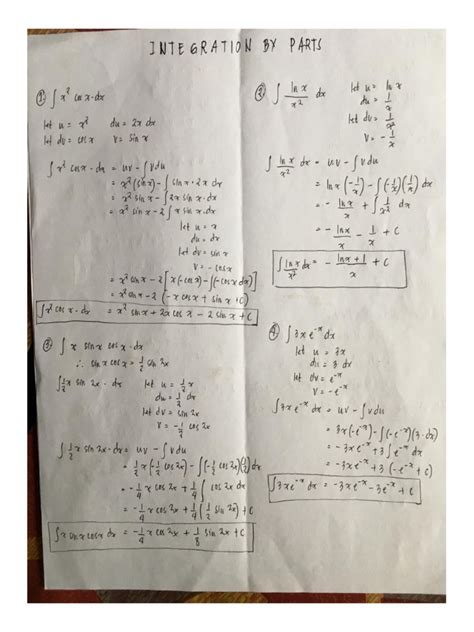 INTEGRATION BY PARTS
① ∫ x² cos x · dx
let u = x²   du = 2x dx
let dv = cos x   v = sin x
∫ x² cos x · dx = uv − ∫ v du
= x² (sin x) − ∫ sin x · 2x dx
= x² sin x − ∫ 2x sin x · dx
= x² sin x − 2 ∫ x sin x · dx
let u = x
du = dx
let dv = sin x
v = − cos x
= x² sin x − 2 [ x (− cos x) − ∫ (− cos x dx) ]
= x² sin x − 2 (− x cos x + sin x + C)
∫ x² cos x · dx = x² sin x + 2x cos x − 2 sin x + C
② ∫ ln x / x² dx   let u = ln x
du = 1/x
let dv = 1/x²
v = − 1/x
∫ ln x / x² dx = uv − ∫ v du
= ln x (− 1/x) − ∫ (− 1/x)(1/x) dx
= − ln x / x + ∫ 1/x² dx
= − ln x / x − 1/x + C
∫ ln x / x² dx = − ln x + 1 / x + C
③ ∫ x sin x cos x · dx
∴ sin x cos x = 1/2 sin 2x
∫ 1/2 x sin 2x · dx   let u = 1/2 x
du = 1/2 dx
let dv = sin 2x
v = − 1/2 cos 2x
∫ 1/2 x sin 2x · dx = uv − ∫ v du
= 1/2 x (− 1/2 cos 2x) − ∫ (− 1/2 cos 2x)(1/2) dx
= − 1/4 x cos 2x + 1/4 ∫ cos 2x dx
= − 1/4 x cos 2x + 1/4 (1/2 sin 2x) + C
∫ x sin x cos x dx = − 1/4 x cos 2x + 1/8 sin 2x + C
④ ∫ 3x e⁻ˣ dx
let u = 3x
du = 3 dx
let dv = e⁻ˣ
v = − e⁻ˣ
∫ 3x e⁻ˣ dx = uv − ∫ v du
= 3x (− e⁻ˣ) − ∫ (− e⁻ˣ)(3 · dx)
= − 3x e⁻ˣ + 3 ∫ e⁻ˣ dx
= − 3x e⁻ˣ + 3 (− e⁻ˣ) + C
∫ 3x e⁻ˣ dx = − 3x e⁻ˣ − 3 e⁻ˣ + C